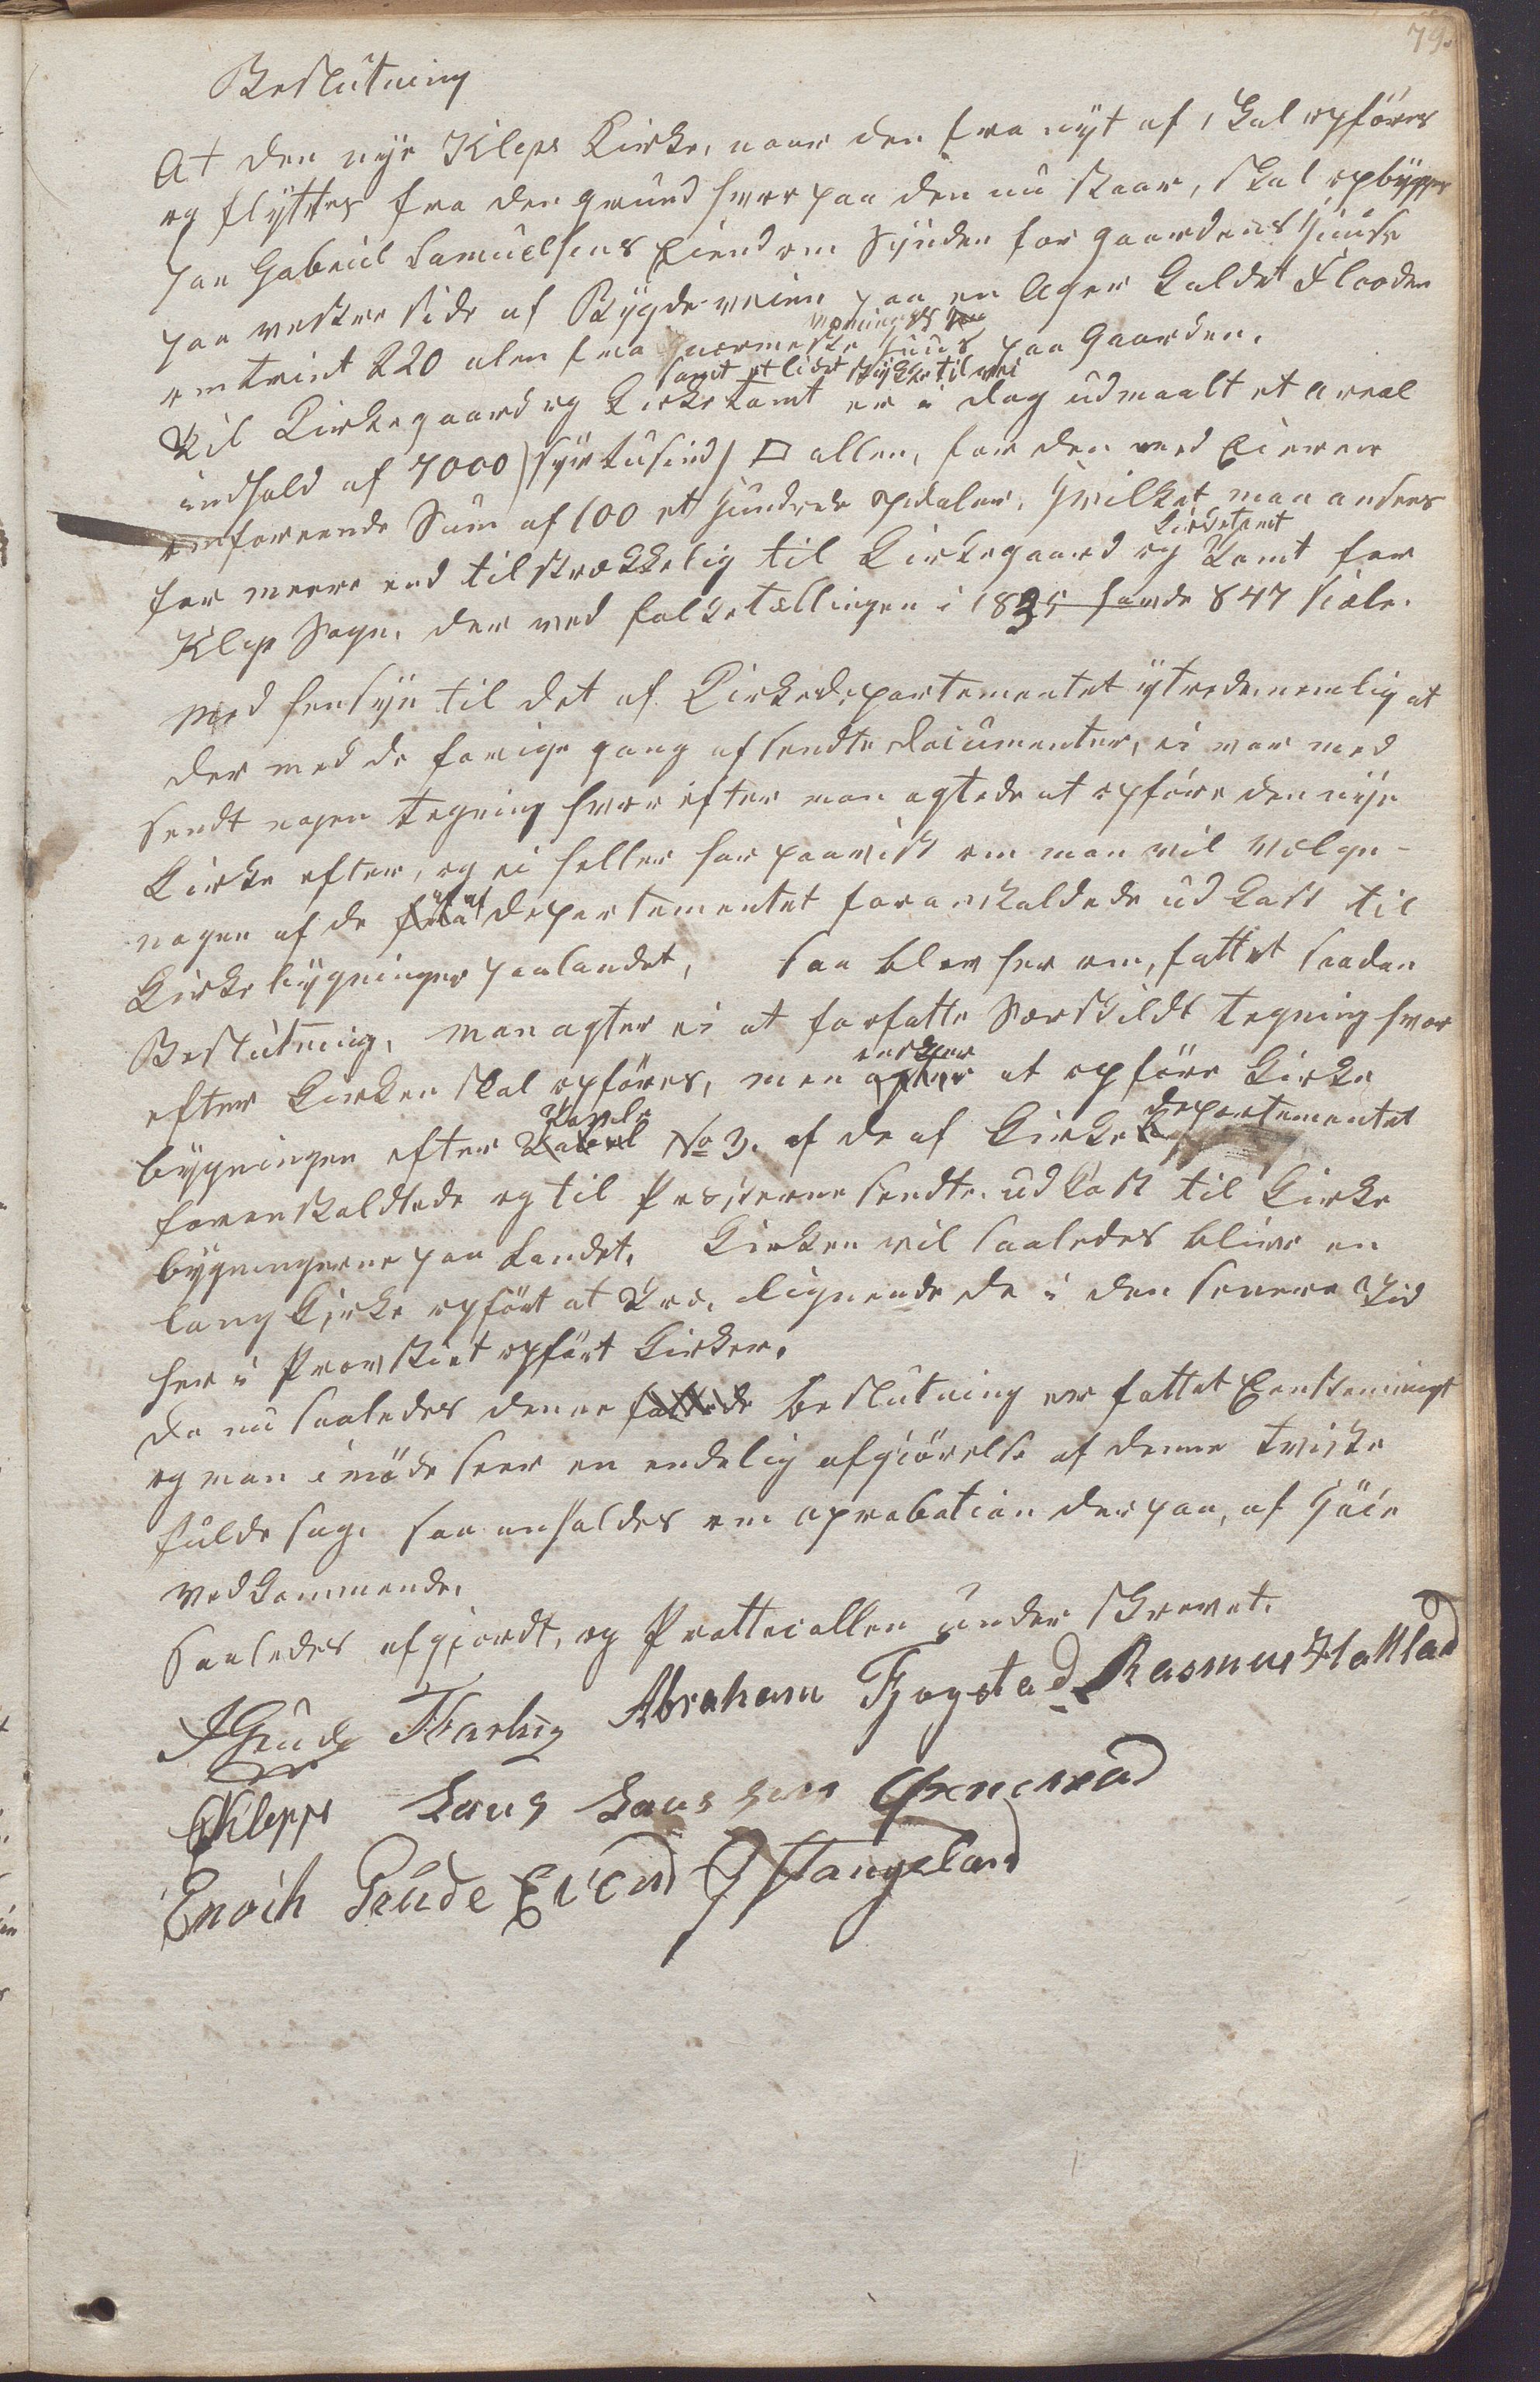 79.
Beslutning
At den nye Kleps Kirke, naar den fra nyt af, skal opføres
og flyttes fra den grund hvorpaa den nu staar, skal opbygges
paa Gabriel Samuelsens Eiendom Synden for gaardens Huuse
paa vestre side af Bygdeveien paa en Ager kaldet Flooden
omtrint 220 alen fra nærmeste vonings Huus paa Gaarden.
samt et lidet stykke til vei
Til Kirkegaard og Kirketomt er i dag udmaalt et areal
indhold af 7000 /syvtusind/ □ allen, for den med Eieren
omforenede Sum af 100 et Hundrede Spdaler, hvilket man ansees
Kirketomt
for meere end tilstrækkelig til Kirkegaard og Tomt for
Klep Sogn, der ved folketællingen i 1835 havde 847 Siæle.
Med hensyn til det af Kirkedepartementet ytrede, nemlig at
der med de forige gang afsendte documenter, ei var med
sendt nogen tegning hvorefter man agtede at opføre den nye
Kirke efter, og ei heller har paavist om man vil vælge
nogen af de af departementet foranstaldede udkast til
Kirkebygninger paalandet, saa blev her om, fattet saadan
Beslutning, man agter ei at forfatte Særskildt tegning hvor
efter Kirken skal opføres, men ønsker at opføre Kirke
bygningen efter Tavle No 3. af de af Kirkedepartementet
foranstaldtede og til Præsterne sendte udkast til Kirke
bygningerne paa Landet. Kirken vil saaledes blive en
lang Kirke opført af Træ, lignende de i den senere Tid
her i Provstiet opført Kirker.
Da nu saaledes denne fattede beslutning er fattet Eenstemmigt
og man imøde seer en endelig afgiørelse af denne tviste
fulde sag, saa anholdes om aprobation derpaa, af Høie
vedkommende.
Saaledes afgjordt, og Prottecollen under skrevet.
Grude TSærheig Abraham Fjogstad Rasmus Hatlad
Klepps Laus Laussen
Enoch Grude Eiend Stangeland